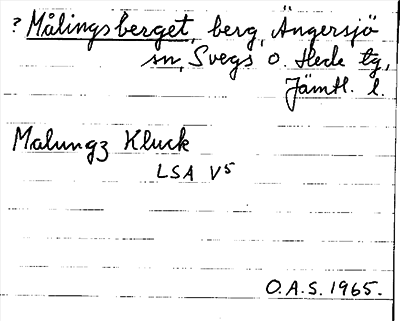 ? Målingsberget, berg, Ängersjö
sn, Svegs o. Hede tg,
Jämtl. l.
Malungz Kluck
LSA V5
O.A.S. 1965.